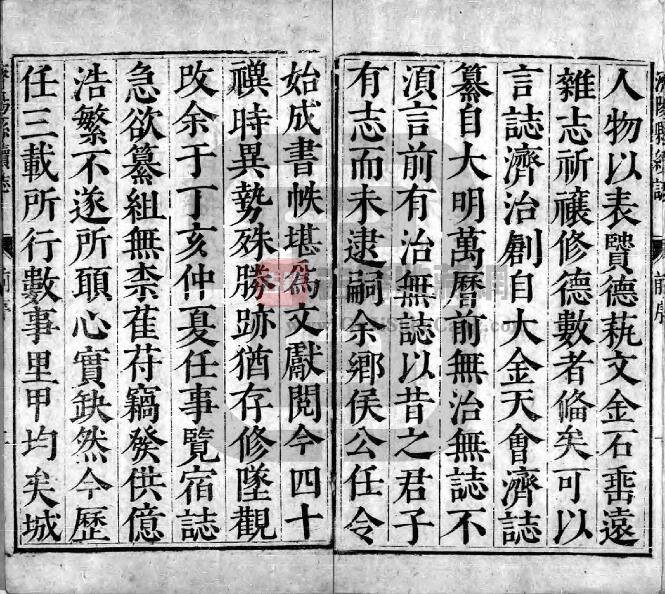 人物以表賢德蓺文金石垂遠
雜志祈禳修德數者俻矣可以
言誌濟治創自大金天會濟誌
纂自大明萬曆前無治無誌不
湏言前有治無誌以昔之君子
有志而未逮嗣余郷侯公任令
始成書帙堪爲文獻閱今四十
禩時異勢殊勝跡猶存修墜觀
攺余于丁亥仲夏任事覽宿誌
急欲纂組無柰萑苻竊發供億
浩繁不遂所頋心實缺然今歷
任三載所行數事里甲均矣城